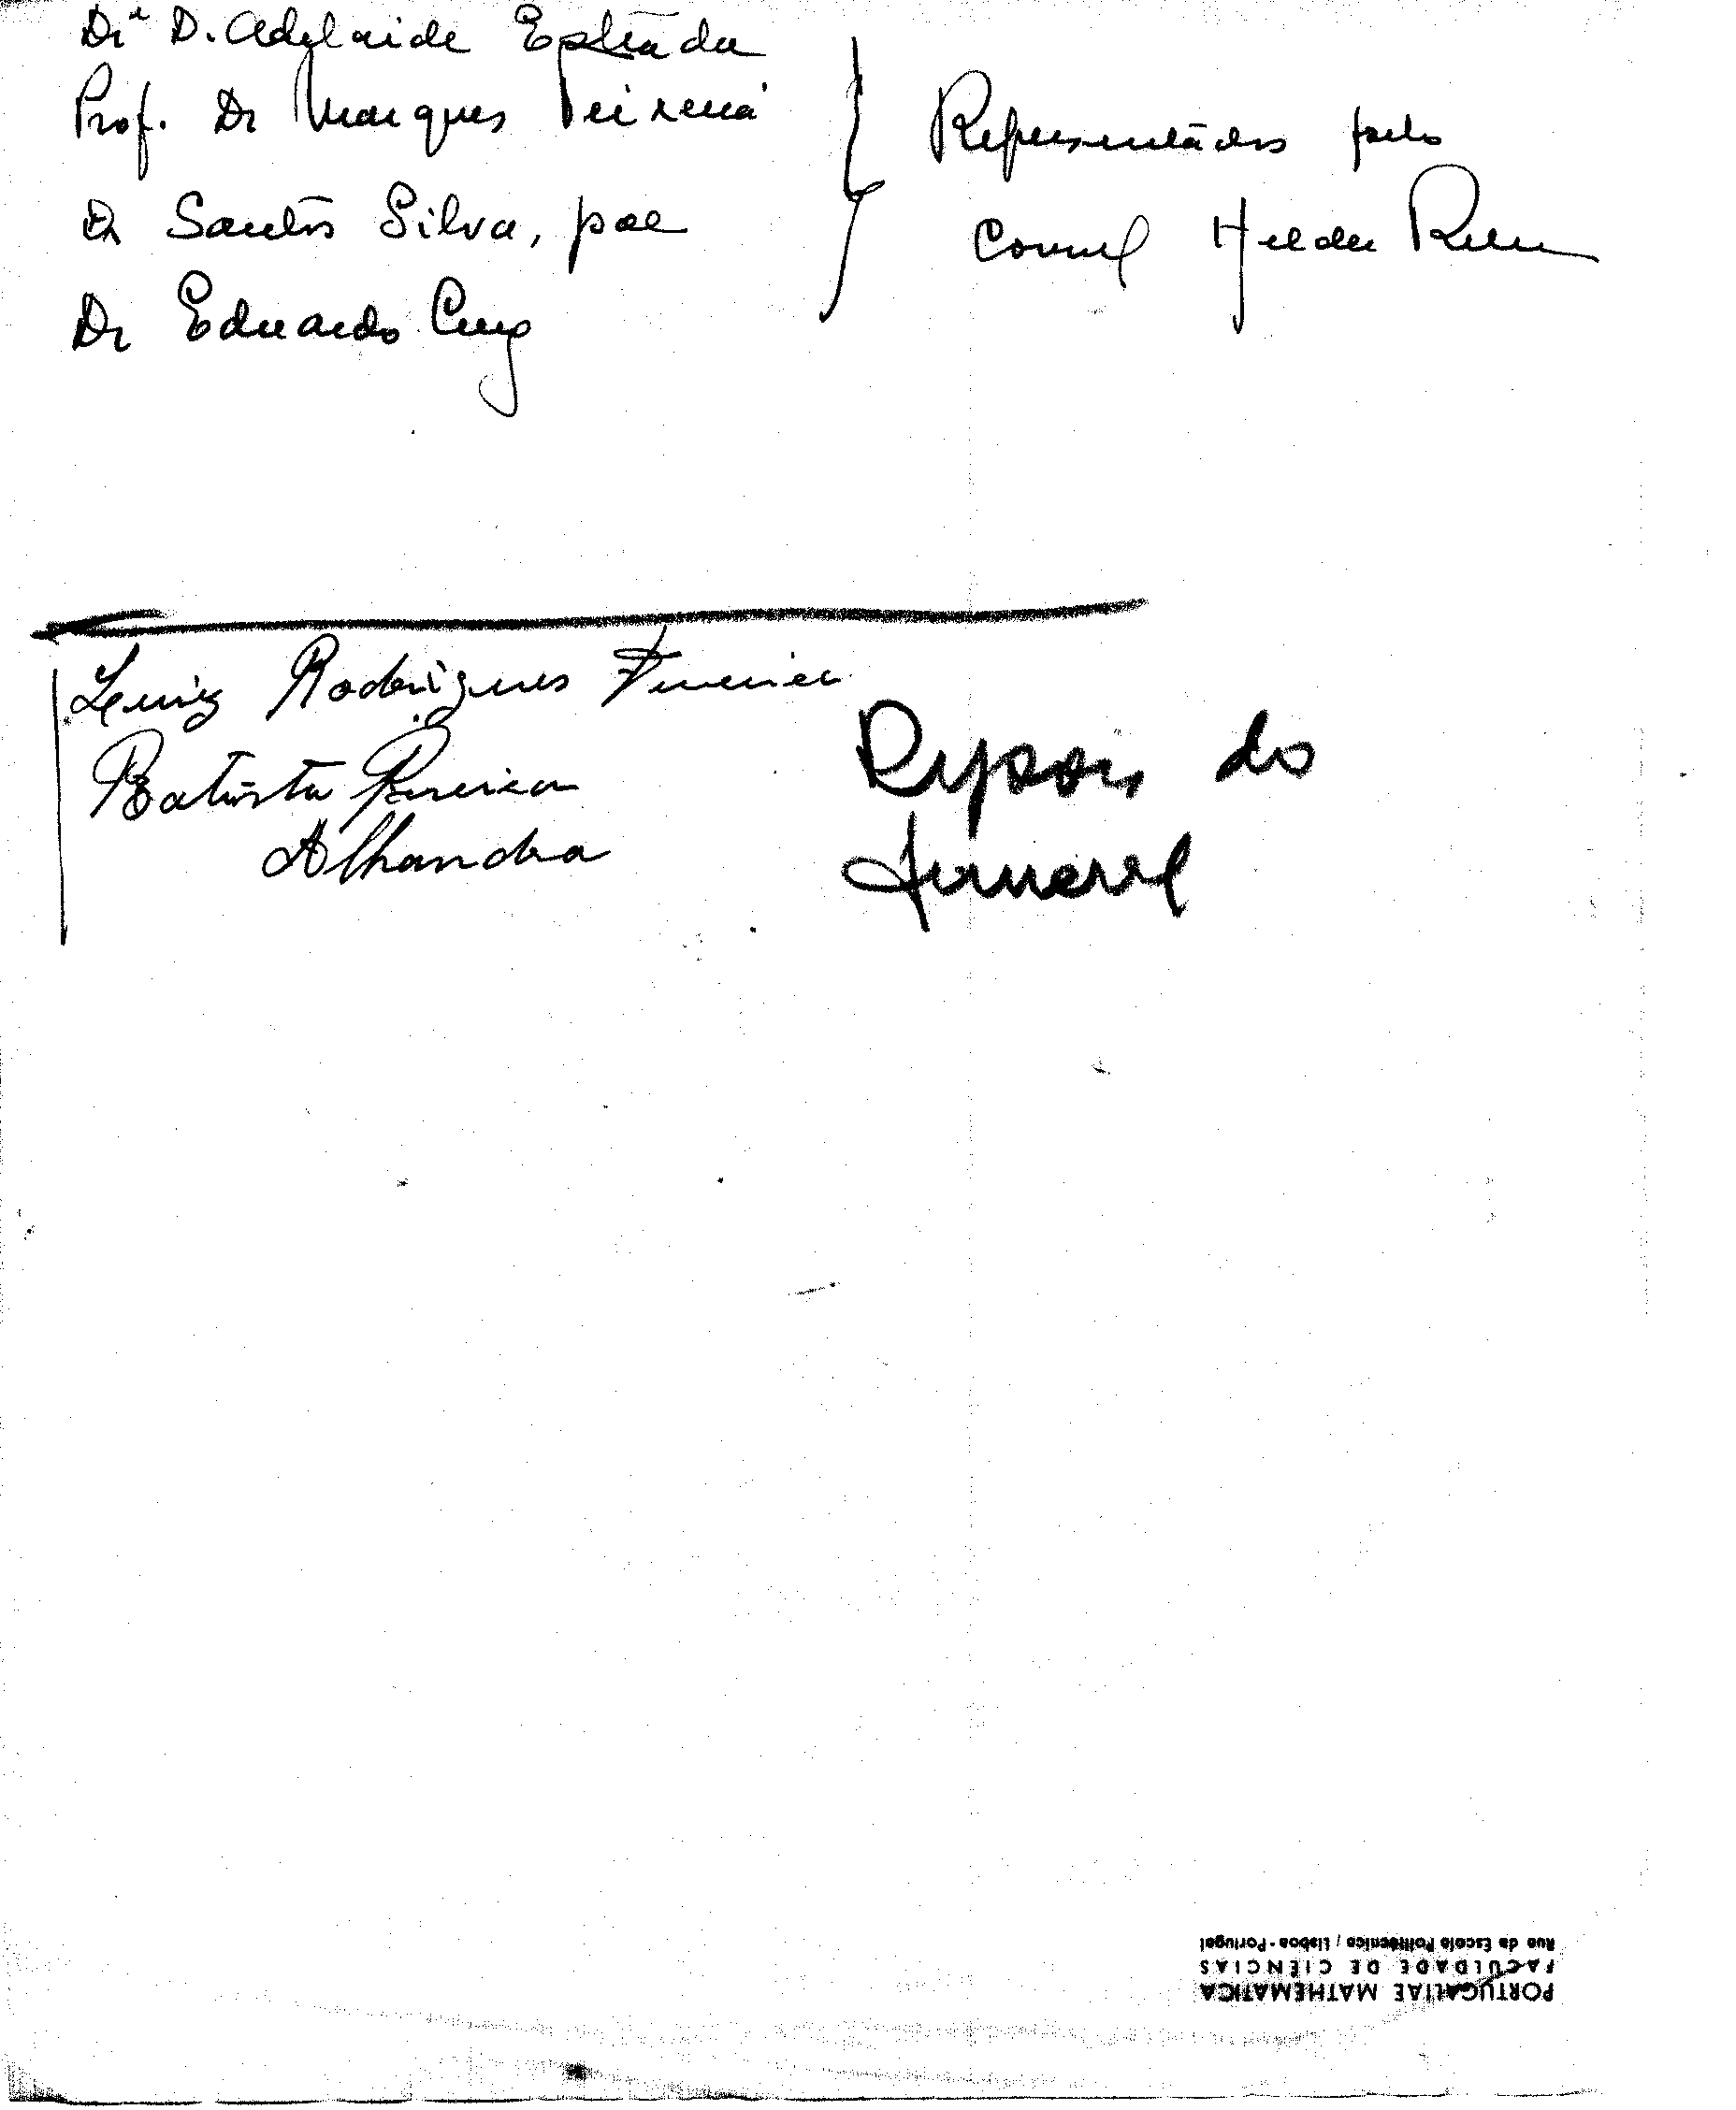 Drª D. Adelaide Estrada
Prof. Dr Marques Teixeira
Dr Santos Silva, pae
Dr Eduardo Cruz
Representados pelo
Coronel Helder Ribeiro
Luiz Rodrigues
Batista Pereira
Alhandra
Depois do
funeral
PORTUGALIAE MATHEMATICA
FACULDADE DE CIÊNCIAS
Rua da Escola Politécnica / Lisboa - Portugal